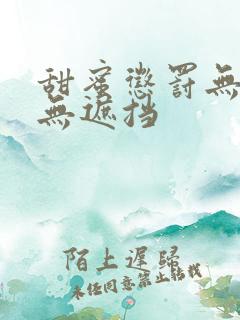 甜蜜懲罰無
無遮挡
陌上遲歸
未经同意禁止转载